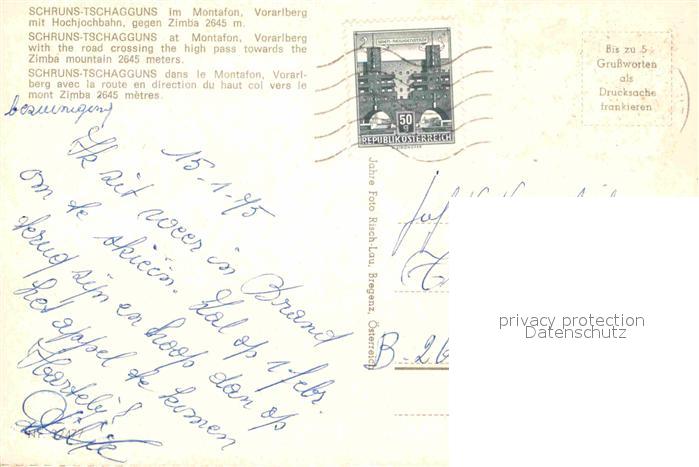 SCHRUNS-TSCHAGGUNS im Montafon, Vorarlberg
mit Hochjochbahn, gegen Zimba 2645 m.
SCHRUNS-TSCHAGGUNS at Montafon, Vorarlberg
with the road crossing the high pass towards the
Zimba mountain 2645 meters.
SCHRUNS-TSCHAGGUNS dans le Montafon, Vorarl-
berg avec la route en direction du haut col vers le
mont Zimba 2645 mètres.
50
g
REPUBLIK ÖSTERREICH
Bis zu 5
Grußworten
als
Drucksache
frankieren
bezuiniging
15-1-75
Ik zit weer in Brand
om te skiën. Zal op 1 febr.
terug zijn en hoop dan op
het appel te komen
Hartelijk
Jahre Foto Risch-Lau, Bregenz, Österreich
B-26
privacy protection
Datenschutz